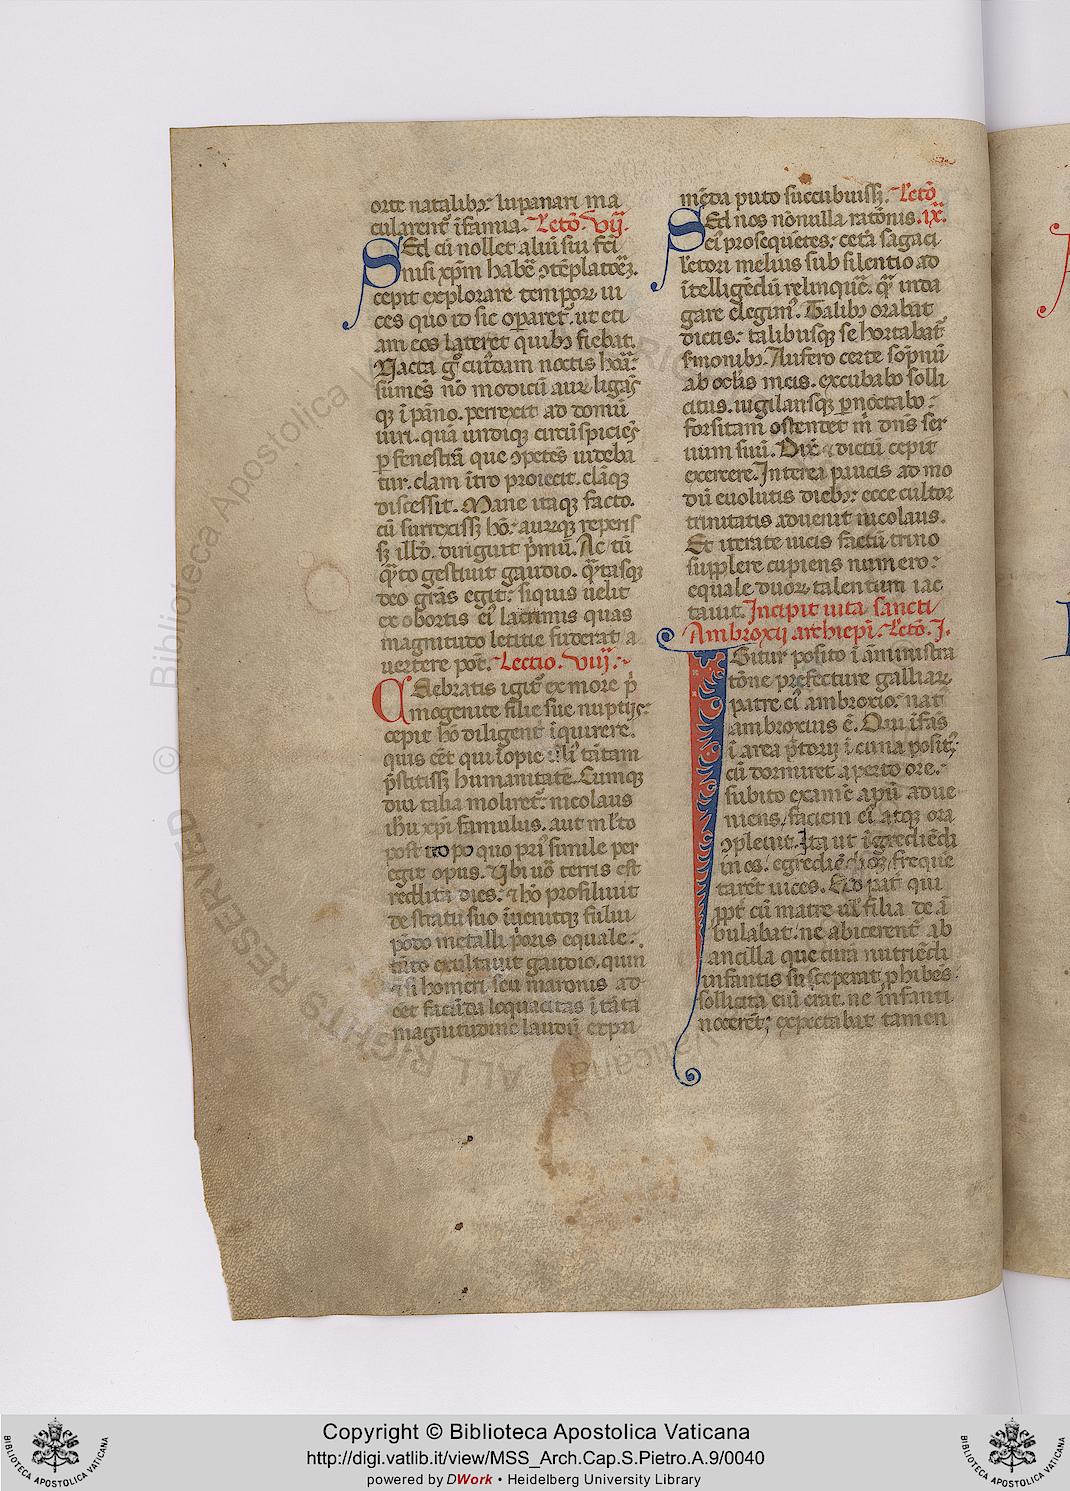 orte natalibꝫ lupanari ma
cularent᷑ ĩfamia. Lectõ. vij.
SEd cũ nollet aliũ sui fc̃i
nisi xp̃m habẽ
cepit explorare tempoꝝ ui
ces quo id sic oꝑaret᷑. ut eti
am eos lateret quibꝫ fiebat.
Nacta gͦ cuiꝰdam noctis horã:
sumẽs nõ modicũ auꝝ ligatũ
qꝫ ĩ pãno. perrexit ad domũ
uiri. quã undiqꝫ circũspiciẽs
ꝑ fenestrã que uideba
tur. clam ĩtro proiecit. clãqꝫ
discessit. Mane itaqꝫ facto.
cũ surrexissꝫ hõ: auꝝqꝫ reperiss
sꝫ illd̃. diriguit p̃mũ. Ac tũ
q̃to gestiuit gaudio. q̃tasqꝫ
deo grãs egit: siquis uelit
ex obortis eiꝰ lacrimis quas
magnitudo letitie fuderat a
uertere pot̃. Lectio. viij.
CElebratis igit᷑ ex more p̃
mogenite filie sue nuptijs:
cepit hõ diligent᷑ ĩquirere.
quis eẽt qui ĩopie tãtam
p̃stitissꝫ humanitatẽ. Cumqꝫ
diu talia moliret᷑: nicolaus
ihũ xp̃i famulus. aut ml̃to
post quo priꝰ simile per
egit opus. Ubi uõ terris est
reddita dies. ⁊ hõ prosiliuit
de stratu suo ĩuenitqꝫ fului
põdo metalli p̃oris equale:
tãto exultauit gaudio. qum
⁊ si homeri seu maronis ad
eẽt facũda loquacitas ĩ tãta
magnitudine laudũ eripi
mẽda puto succubuissꝫ. Lectõ
SEd nos nõnulla ratõnis. ix.
eiꝰ prosequẽtes: cetã sagaci
lectori melius sub silentio ad
ĩtelligẽdũ relinquẽ. q̃ inda
gare elegimꝰ. Talibꝫ orabat
dictis: talibusqꝫ se hortabat᷑
smonibꝫ. Aufero certe sõpnũ
ab ocl̃is meis. excubabo solli
citus. uigilansqꝫ ꝑnoctabo:
forsitam ostendet m̃ dñs ser
uum suũ. Dix̃ ⁊ dictũ cepit
exercere. Interea paucis ad mo
dũ euolutis diebꝫ: ecce cultor
trinitatis aduenit nicolaus.
Et iterate uicis factũ trino
supplere cupiens numero:
equale duoꝝ talentum iac
tauit. Incipit uita sancti
Ambroxij archiep̃i. Lectõ. I.
IGitur posito ĩ aminĩstra
tõne prefecture galliaꝝ
patre eiꝰ ambroxio: natꝰ
ambroxius ẽ. Qui ĩfãs
ĩ area p̃torij ĩ cuna positꝰ:
cũ dormiret aperto ore:
subito examẽ apũ adue
niens, faciem eiꝰ atqꝫ ora
ꝯpleuit. Ita ut ĩgrediẽdi
in os. freque
taret uices. pat̃ qui
ppt̃ cũ matre ul̃ filia de ĩ
bulabat: ne abicerent᷑ ab
ancilla que cura nutriẽdi
infantis susceperat ꝓhibẽs.
sollicita eiũ erat. ne ĩnfanti
nocerẽt; expectabat tamen
Copyright © Biblioteca Apostolica Vaticana
http://digi.vatlib.it/view/MSS_Arch.Cap.S.Pietro.A.9/0040
powered by DWork • Heidelberg University Library